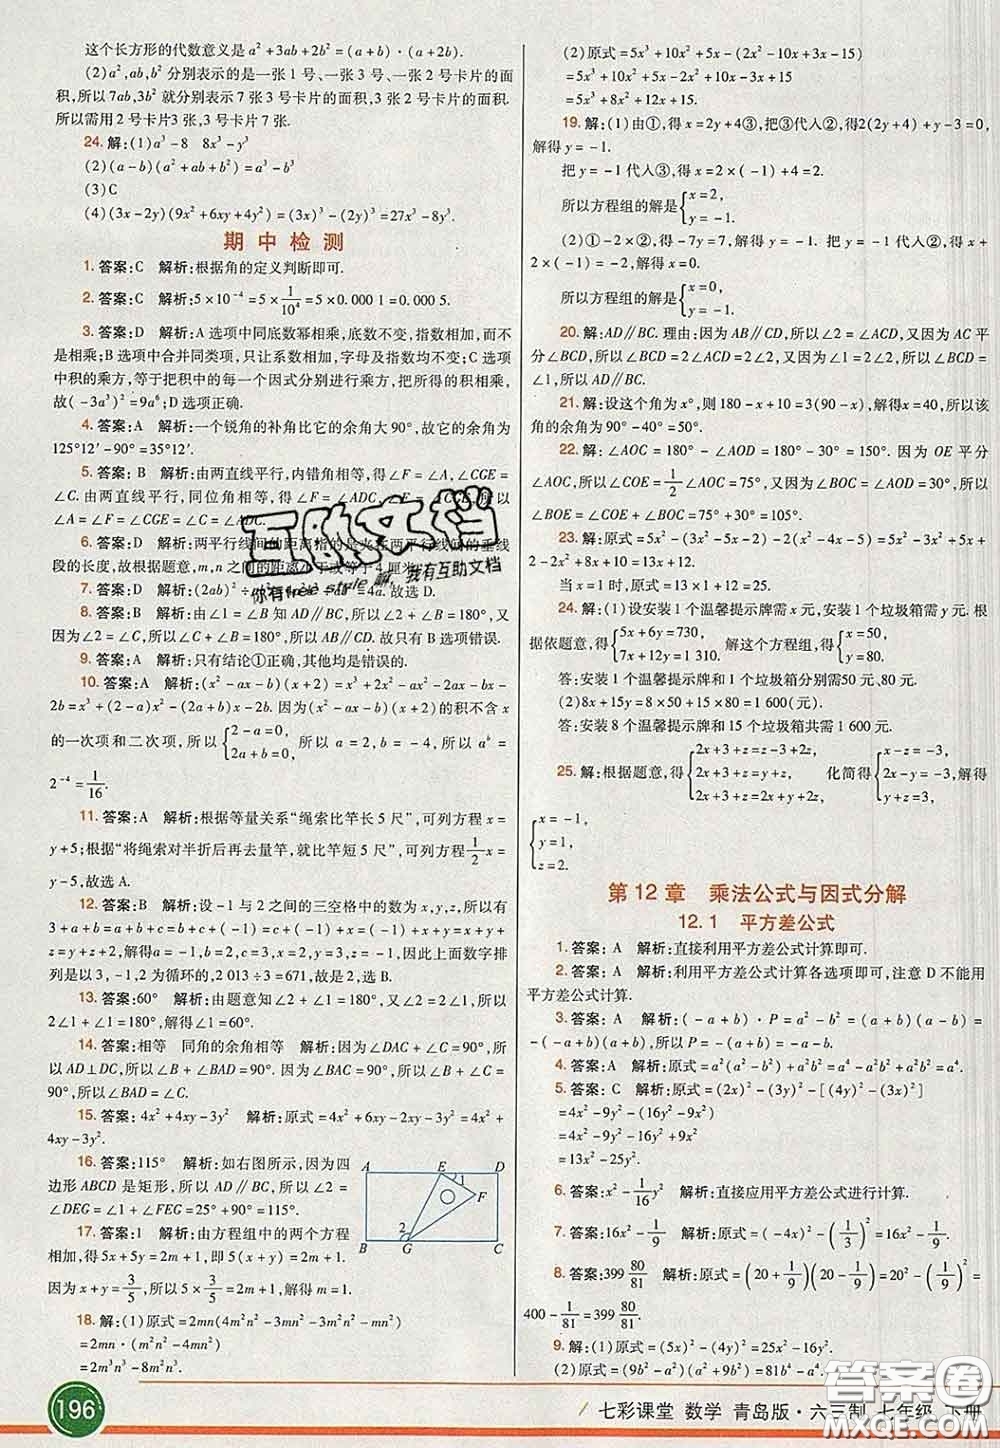 这个长方形的代数意义是a²+3ab+2b²=(a+b)·(a+2b).
(2)a²,ab,b²分别表示的是一张1号、一张3号、一张2号卡片的面
积,所以7ab,3b²就分别表示7张3号卡片的面积,3张2号卡片的面积.
所以需用2号卡片3张,3号卡片7张.
24.解:(1)a³-8 8x³-y³
(2)(a-b)(a²+ab+b²)=a³-b³
(3)C
(4)(3x-2y)(9x²+6xy+4y²)=(3x)³-(2y)³=27x³-8y³.
期中检测
1.答案:C 解析:根据角的定义判断即可.
2.答案:C 解析:5×10⁻⁴=5×1/10⁴=5×0.000 1=0.000 5.
3.答案:D 解析:A选项中同底数幂相乘,底数不变,指数相加,而不
是相乘;B选项中合并同类项,只让系数相加,字母及指数均不变;C选
项中积的乘方,等于把积中的每一个因式分别进行乘方,把所得的积相乘,
故(-3a³)²=9a⁶;D选项正确.
4.答案:A 解析:一个锐角的补角比它的余角大90°,故它的余角为
125°12′-90°=35°12′.
5.答案:B 解析:由两直线平行,内错角相等,得∠F=∠A,∠CGE=
∠C.由两直线平行,同位角相等,得∠F=∠ADC,
∠A=∠C=∠F=∠CGE=
6.答案:B 解析:两平行线间的距离指的是夹在两平行线间的垂线
段的长度,故根据题意,m,n之间的距离小于或等于4厘米
7.答案:D 解析:(2ab)²÷ =4a.故选D.
8.答案:B 解析:由∠1=∠B知AD∥BC,所以∠2+∠B=180°,又
因为∠2=∠C,所以∠C+∠B=180°,所以AB∥CD.故只有B选项错误.
9.答案:A 解析:只有结论①正确,其他均是错误的.
10.答案:A 解析:(x²-ax-b)(x+2)=x³+2x²-ax²-2ax-bx-
2b=x³+(2-a)x²-(2a+b)x-2b.因为(x²-ax-b)(x+2)的积不含x
的一次项和二次项,所以{2-a=0, 2a+b=0, 所以a=2,b=-4,所以aᵇ=
2⁻⁴=1/16.
11.答案:A 解析:根据等量关系“绳索比竿长5尺”,可列方程x=
y+5;根据“将绳索对半折后再去量竿,就比竿短5尺”,可列方程1/2x=
y-5,故选A.
12.答案:B 解析:设-1与2之间的三空格中的数为x,y,z,所以
3+a+b=a+b+c=b+c+(-1)=c+(-1)+x=-1+x+y=x+y+
z=y+z+2,解得a=-1,b=2,c=3,x=2,y=3,z=-1.因此上面数字排
列是以3,-1,2为循环的,2 013÷3=671,故是2,选B.
13.答案:60° 解析:由题意知∠2+∠1=180°,又∠2=2∠1,所以
2∠1+∠1=180°,解得∠1=60°.
14.答案:相等 同角的余角相等 解析:因为∠DAC+∠C=90°,所
以AD⊥DC,所以∠ADC=∠BAC=90°.所以∠B+∠C=∠B+
∠BAD=90°,所以∠BAD=∠C.
15.答案:4x²+4xy-3y² 解析:原式=4x²+6xy-2xy-3y²=4x²+
4xy-3y².
16.答案:115° 解析:如右图所示,因为四
边形ABCD是矩形,所以AD∥BC,所以∠2=
∠DEG=∠1+∠FEG=25°+90°=115°.
A E D 1 F 2 B G C
17.答案:1 解析:由方程组中的两个方程
相加,得5x+5y=2m+1,即5(x+y)=2m+1.
因为x+y=3/5,所以5×3/5=2m+1,解得m=1.
18.解:(1)原式=2mn(4m²n²-1-3m²n²-4mn+1)
=2mn·(m²n²-4mn)
=2m³n³-8m²n².
(2)原式=5x³+10x²+5x-(2x²-10x+3x-15)
=5x³+10x²+5x-2x²+10x-3x+15
=5x³+8x²+12x+15.
19.解:(1)由①,得x=2y+4③,把③代入②,得2(2y+4)+y-3=0,
解得y=-1.
把y=-1代入③,得x=2×(-1)+4=2.
所以方程组的解是{x=2, y=-1.
(2)①-2×②,得-7y=7,解得y=-1.把y=-1代入②,得x+
2×(-1)=-2,解得x=0.
所以方程组的解是{x=0, y=-1.
20.解:AD∥BC.理由:因为AB∥CD,所以∠2=∠ACD,又因为AC平
分∠BCD,所以∠BCD=2∠ACD=2∠2,又因为∠1=2∠2,所以∠BCD=
∠1,所以AD∥BC.
21.解:设这个角为x°,则180-x+10=3(90-x),解得x=40,所以该
角的余角为90°-40°=50°.
22.解:∠AOC=180°-∠AOD=180°-30°=150°.因为OE平分
∠AOC,所以∠COE=1/2∠AOC=75°,又因为∠BOC=∠AOD=30°,所以
∠BOE=∠BOC+∠COE=75°+30°=105°.
23.解:原式=5x²-(2x²-5x)-2(x²-6-9x)=5x²-2x²+5x-
2x²+12+
当x=1时,原式=13×1+12=25.
24.解:(1)设安装1个温馨提示牌需x元,安装1个垃圾箱需y元.根
据依题意,得{5x+6y=730, 7x+12y=1 310. 解这个方程组,得{x=50, y=80.
答:安装1个温馨提示牌和1个垃圾箱分别需50元、80元.
(2)8x+15y=8×50+15×80=1 600(元).
答:安装8个温馨提示牌和15个垃圾箱共需1 600元.
25.解:根据题意,得{2x+3+z=-3+2z, 化简得{x-z=-3, 2x-y=-3, y+z=3, 解得
{x=-1, y=1, z=2.
第12章 乘法公式与因式分解
12.1 平方差公式
1.答案:A 解析:直接利用平方差公式计算即可.
2.答案:A 解析:利用平方差公式计算各选项即可,注意D不能用
平方差公式计算.
3.答案:A 解析:(-a+b)·P=a²-b²=(a+b)(a-b)=
-(-a+b)(a+b),所以P=-(a+b)=-a-b.
4.答案:A 解析:原式=a⁴-a²b²+a²b²=a⁴.
5.答案:C 解析:原式=(2x)²-(3y)²-[(4y)²-(3x)²]
=4x²-9y²-(16y²-9x²)
=4x²-9y²-16y²+9x²
=13x²-25y².
6.答案:x²-1/16y² 解析:直接应用平方差公式进行计算.
7.答案:16x²-1/9 解析:原式=(-4x)²-(1/3)²=16x²-1/9
8.答案:399 80/81 解析:原式=(20+1/9)(20-1/9)=20²-(1/9)²=
400-1/81=399 80/81
9.解:(1)原式=(5x)²-(4y)²=25x²-16y².
(2)原式=(9b²-a²)(a²+9b²)=81b⁴-a⁴.
互助文档
style
我有互助文档
196
七彩课堂 数学 青岛版·六三制 七年级 下册
答案圈
MXQE.COM